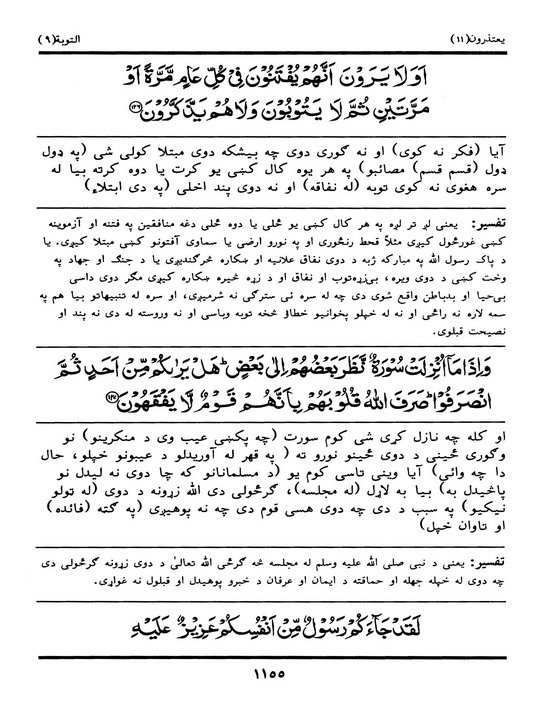 يعتذرون(١١) التوبة(٩)
اَوَلَا يَرَوْنَ اَنَّهُمْ يُفْتَنُوْنَ فِيْ كُلِّ عَامٍ مَّرَّةً اَوْ
مَرَّتَيْنِ ثُمَّ لَا يَتُوْبُوْنَ وَلَا هُمْ يَذَّكَّرُوْنَ ﴿١٢٦﴾
آيا (فکر نه کوی) او نه ګوری دوی چه بيشکه دوی مبتلا کولی شی (په ډول
ډول (قسم قسم) مصائبو) په هر يوه کال کښی يو کرت يا دوه کرته بيا له
سره هغوی نه کوی توبه (له نفاقه) او نه دوی پند اخلی (په دی ابتلاء)
تفسير: يعنی لږ تر لږه په هر کال کښی يو ځلی يا دوه ځلی دغه منافقين په فتنه او آزموينه
کښی غورځول کيږی مثلاً قحط رنځوری او په نورو ارضی يا سماوی آفتونو کښی مبتلا کيږی. يا
د پاک رسول الله په مبارکه ژبه د دوی نفاق علانيه او ښکاره څرګنديږی يا د جنګ او جهاد په
وخت کښی د دوی ويره، بی‌زړه‌توب او نفاق او د زړه خيره ښکاره کيږی مګر دوی داسی
بی‌حيا او بدباطن واقع شوی دی چه له سره ئی سترګی نه شرميږی، او سره له تنبيهاتو بيا هم په
سمه لاره نه راځی او نه له خپلو پخوانيو خطاؤ څخه توبه وباسی او نه وروسته له دی نه پند او
نصيحت قبلوی.
وَاِذَا مَآ اُنْزِلَتْ سُوْرَةٌ نَّظَرَ بَعْضُهُمْ اِلٰى بَعْضٍ ۭ هَلْ يَرٰىكُمْ مِّنْ اَحَدٍ ثُمَّ
انْصَرَفُوْا ۭ صَرَفَ اللّٰهُ قُلُوْبَهُمْ بِاَنَّهُمْ قَوْمٌ لَّا يَفْقَهُوْنَ ﴿١٢٧﴾
او کله چه نازل کړی شی کوم سورت (چه پکښی عيب وی د منکرينو) نو
وګوری ځينی د دوی ځينو نورو ته ( په قهر له آوريدلو د عيبونو خپلو، حال
دا چه وائی) آيا وينی تاسی کوم يو (د مسلمانانو که چا دوی نه ليدل نو
پاڅيدل به) بيا به لاړل (له مجلسه)، ګرځولی دی الله زړونه د دوی (له ټولو
نيکيو) په سبب د دی چه دوی هسی قوم دی چه نه پوهيږی (په ګټه (فائده)
او تاوان خپل)
تفسير: يعنی د نبی صلی الله عليه وسلم له مجلسه څه ګرځی الله تعالیٰ د دوی زړونه ګرځولی دی
چه دوی له خپله جهله او حماقته د ايمان او عرفان د خبرو پوهيدل او قبلول نه غواړی.
لَقَدْ جَآءَكُمْ رَسُوْلٌ مِّنْ اَنْفُسِكُمْ عَزِيْزٌ عَلَيْهِ
١١٥٥